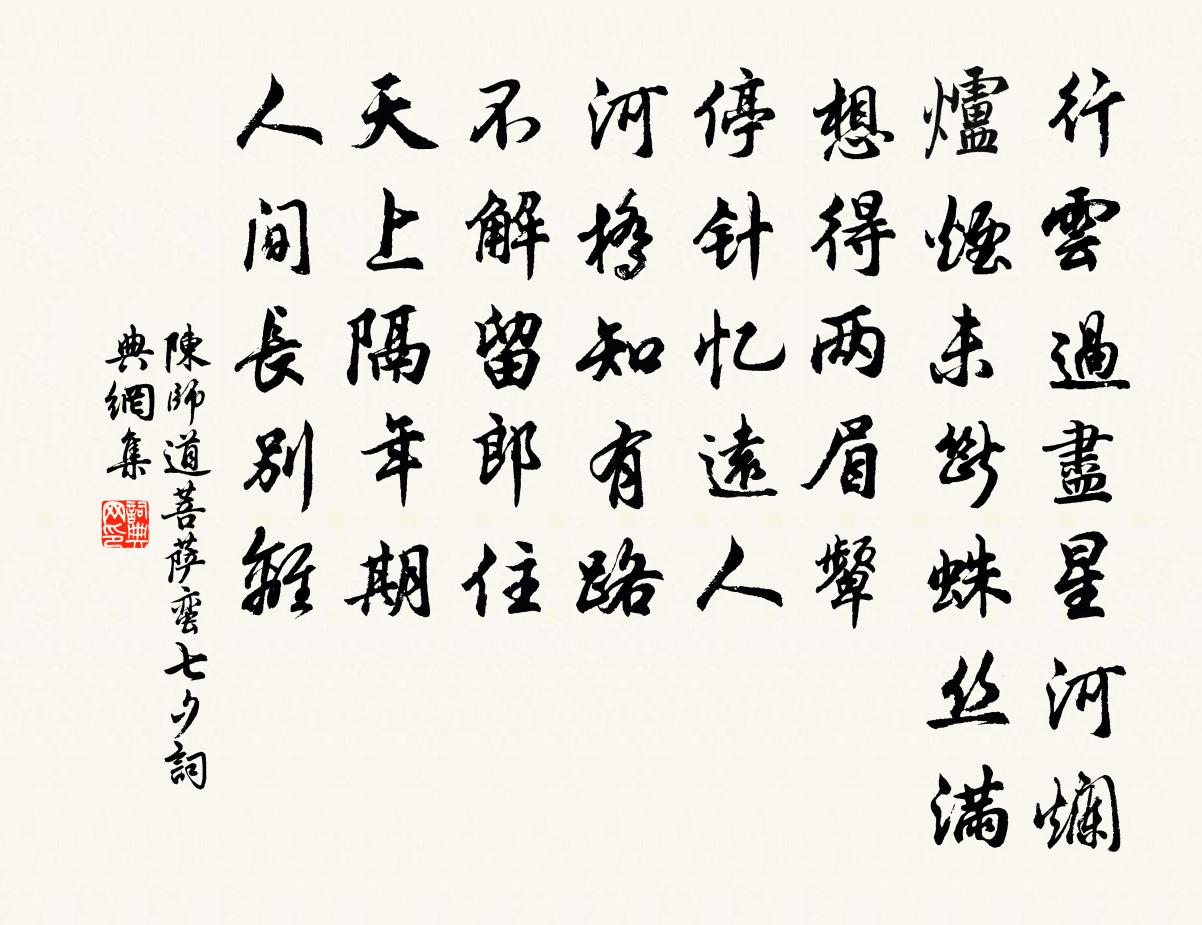 行雲過盡星河爛
爐煙未斷蛛丝滿
想得两眉顰
停针忆遠人
河橋知有路
不解留郎住
天上隔年期
人间長别離
陳師道菩萨蛮七夕詞
典網集
詞典网印